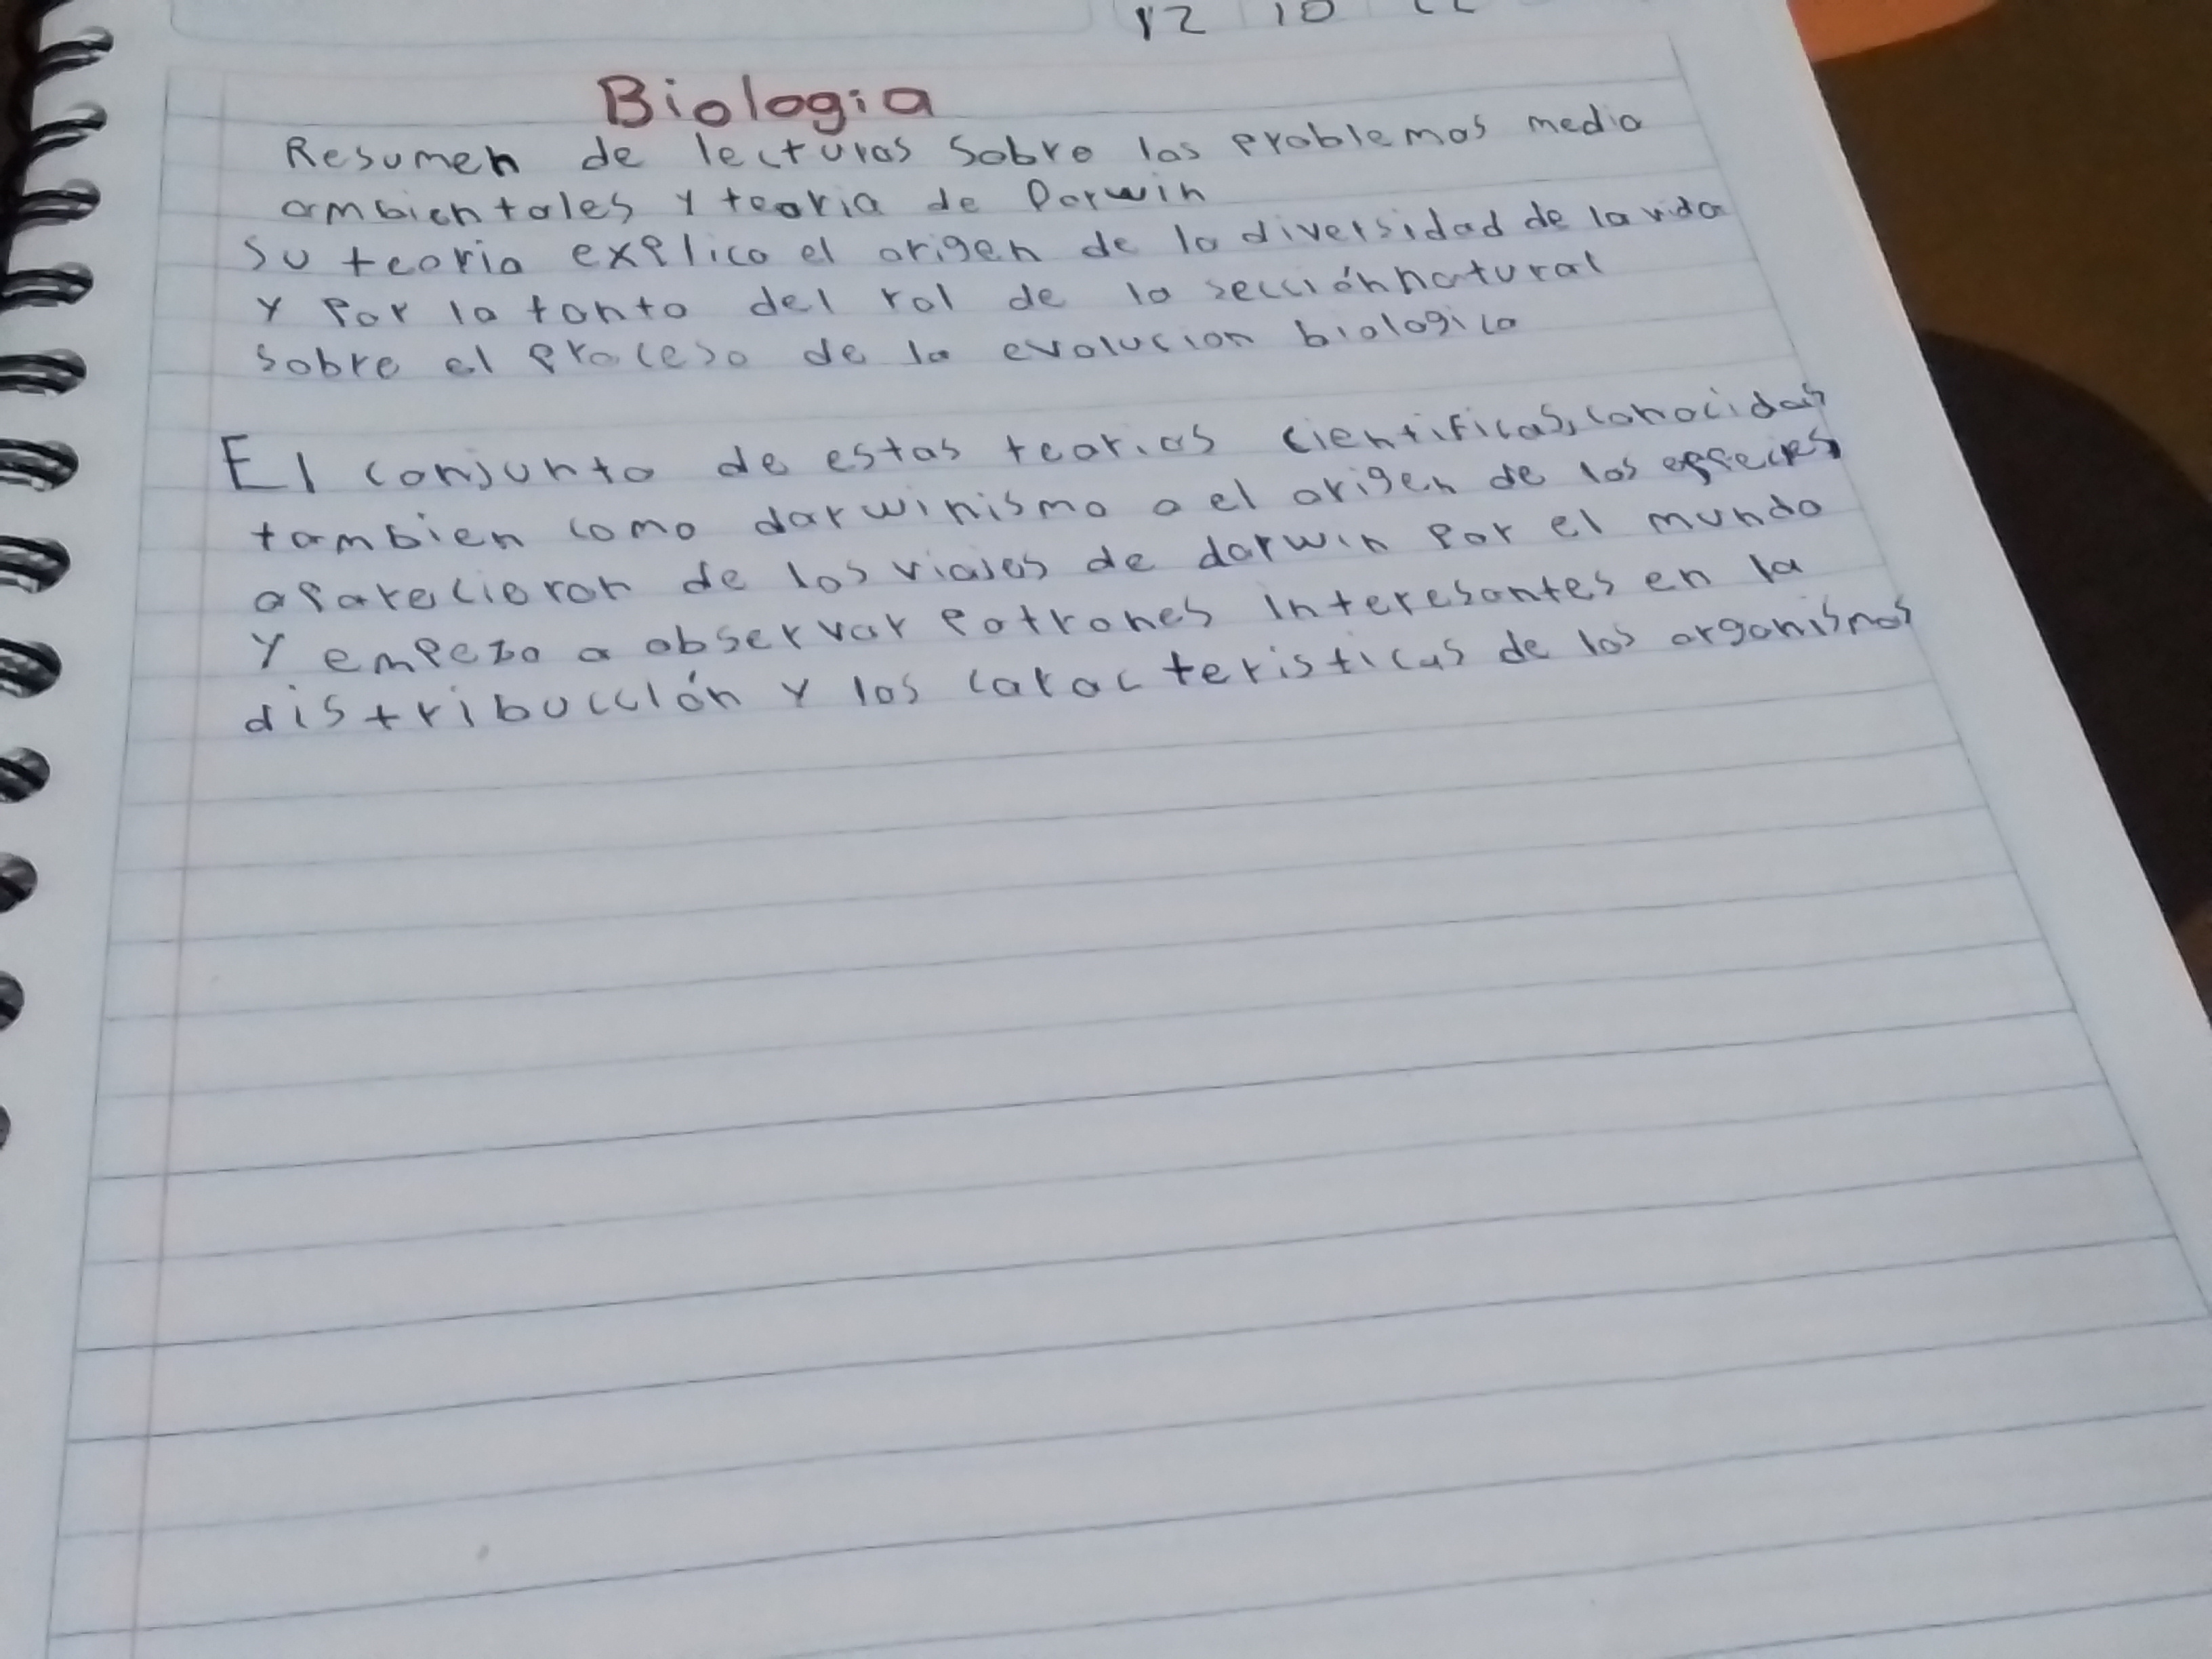 12 10 22
Biologia
Resumen de lecturas sobre los problemas medio
ambientales y teoria de Darwin
Su teoria explica el origen de la diversidad de la vida
y por lo tanto del rol de la secciónnatural
sobre el proceso de la evolucion biologica
El conjunto de estas teorias cientificas, conocidas
tambien como darwinismo o el origen de las especies,
aparecieron de los viajes de darwin por el mundo
y empezo a observar patrones interesantes en la
distribucción y los caracteristicas de los organismos